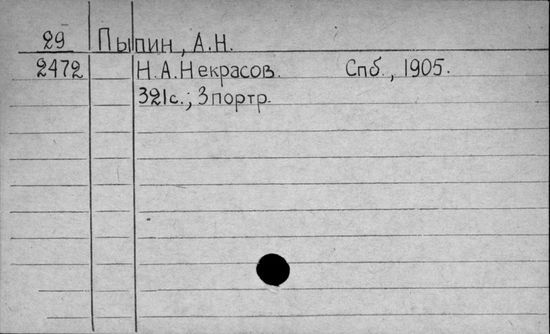 29 Пыпин, А.Н.
2472 Н.А.Некрасов. Спб., 1905.
321с.; 3портр.